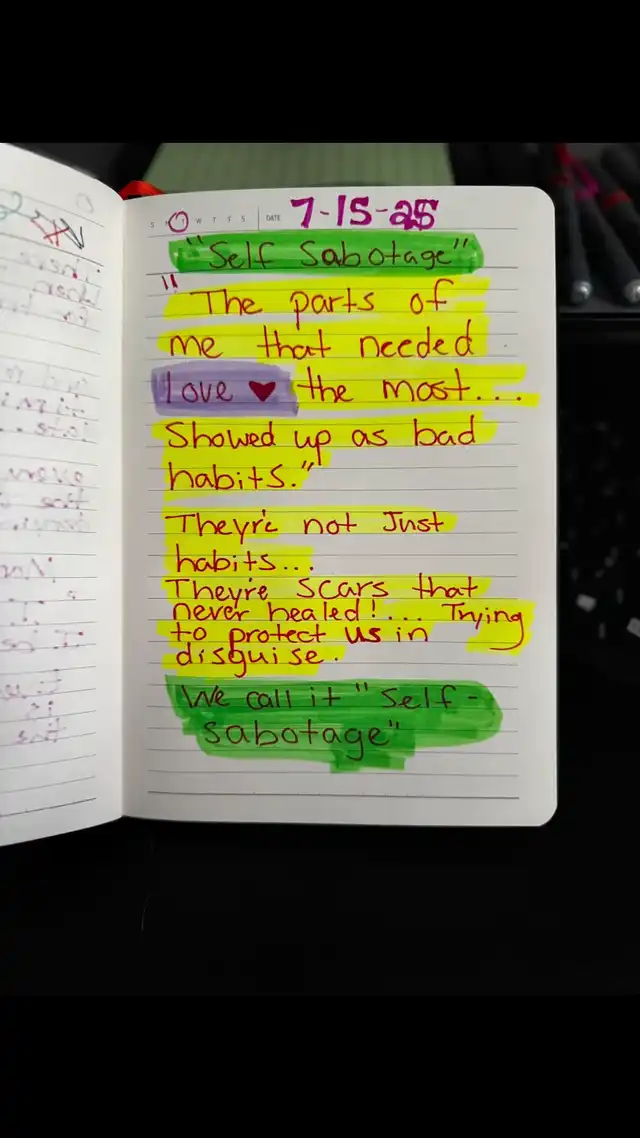 S M T W T F S DATE 7-15-25
"Self Sabotage"
" The parts of
me that needed
love ♥ the most...
Showed up as bad
habits."
They're not Just
habits...
They're scars that
never healed!... Trying
to protect us in
disguise.
We call it "Self-
Sabotage"